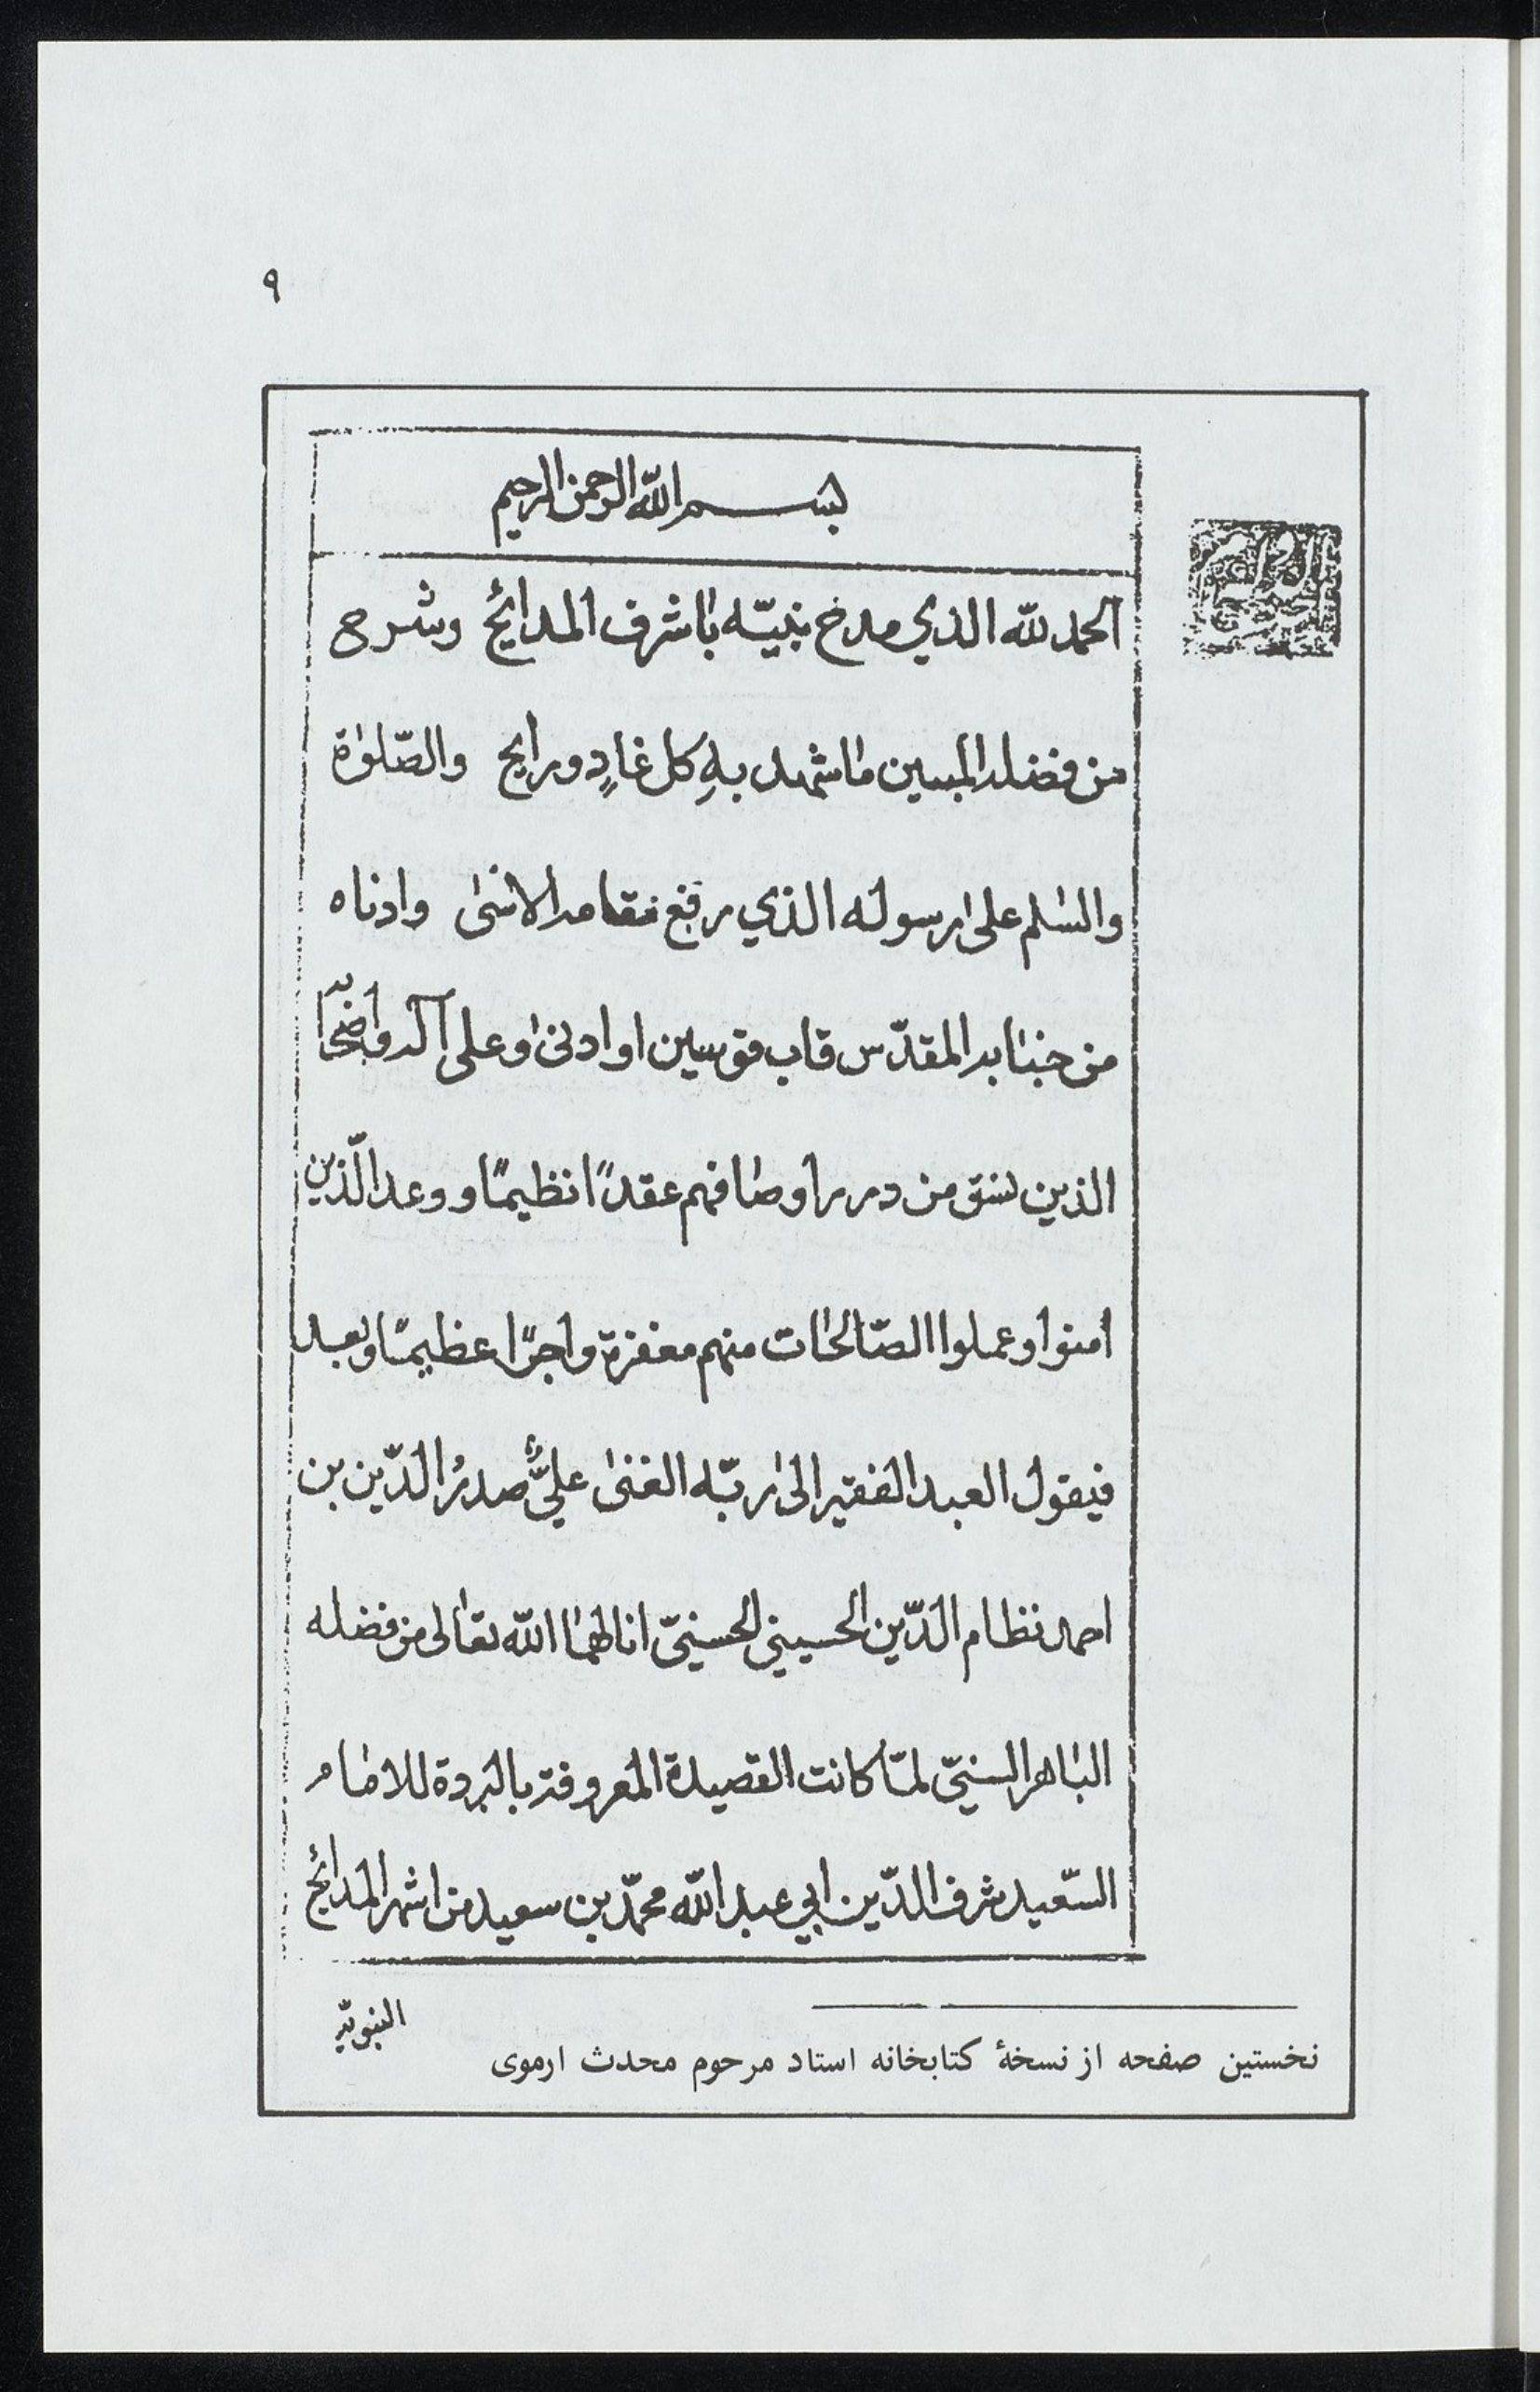 ٩
بسم الله الرحمن الرحيم
الحمد لله الذي مدح نبيّه باشرف المدائح وشرح
من فضله المبين ما شهد بهِ كل غادٍ ورايح والصّلوٰة
والسّلم على رسوله الذي رفع مقامه الاسنىٰ وادناه
من جنابه المقدّس قاب قوسين او ادنىٰ وعلى آله واصحابه
الذين نسق من درر اوصافهم عقدًا نظيمًا ووعد الّذين
امنوا وعملوا الصّالحات منهم مغفرة واجرًا عظيمًا وبعد
فيقول العبد الفقير الى ربّه الغنىٰ عليٌّ صدرُ الدّين بن
احمد نظام الدّين الحسيني الحسنيّ انالهما الله تعالى من فضله
الباهر السنيّ لمّا كانت القصيدة المعروفة بالبردة للامام
السّعيد شرف الدّين ابي عبد الله محمّد بن سعيد من اشهر المدائح
النبويّه
نخستین صفحه از نسخهٔ کتابخانه استاد مرحوم محدث ارموی